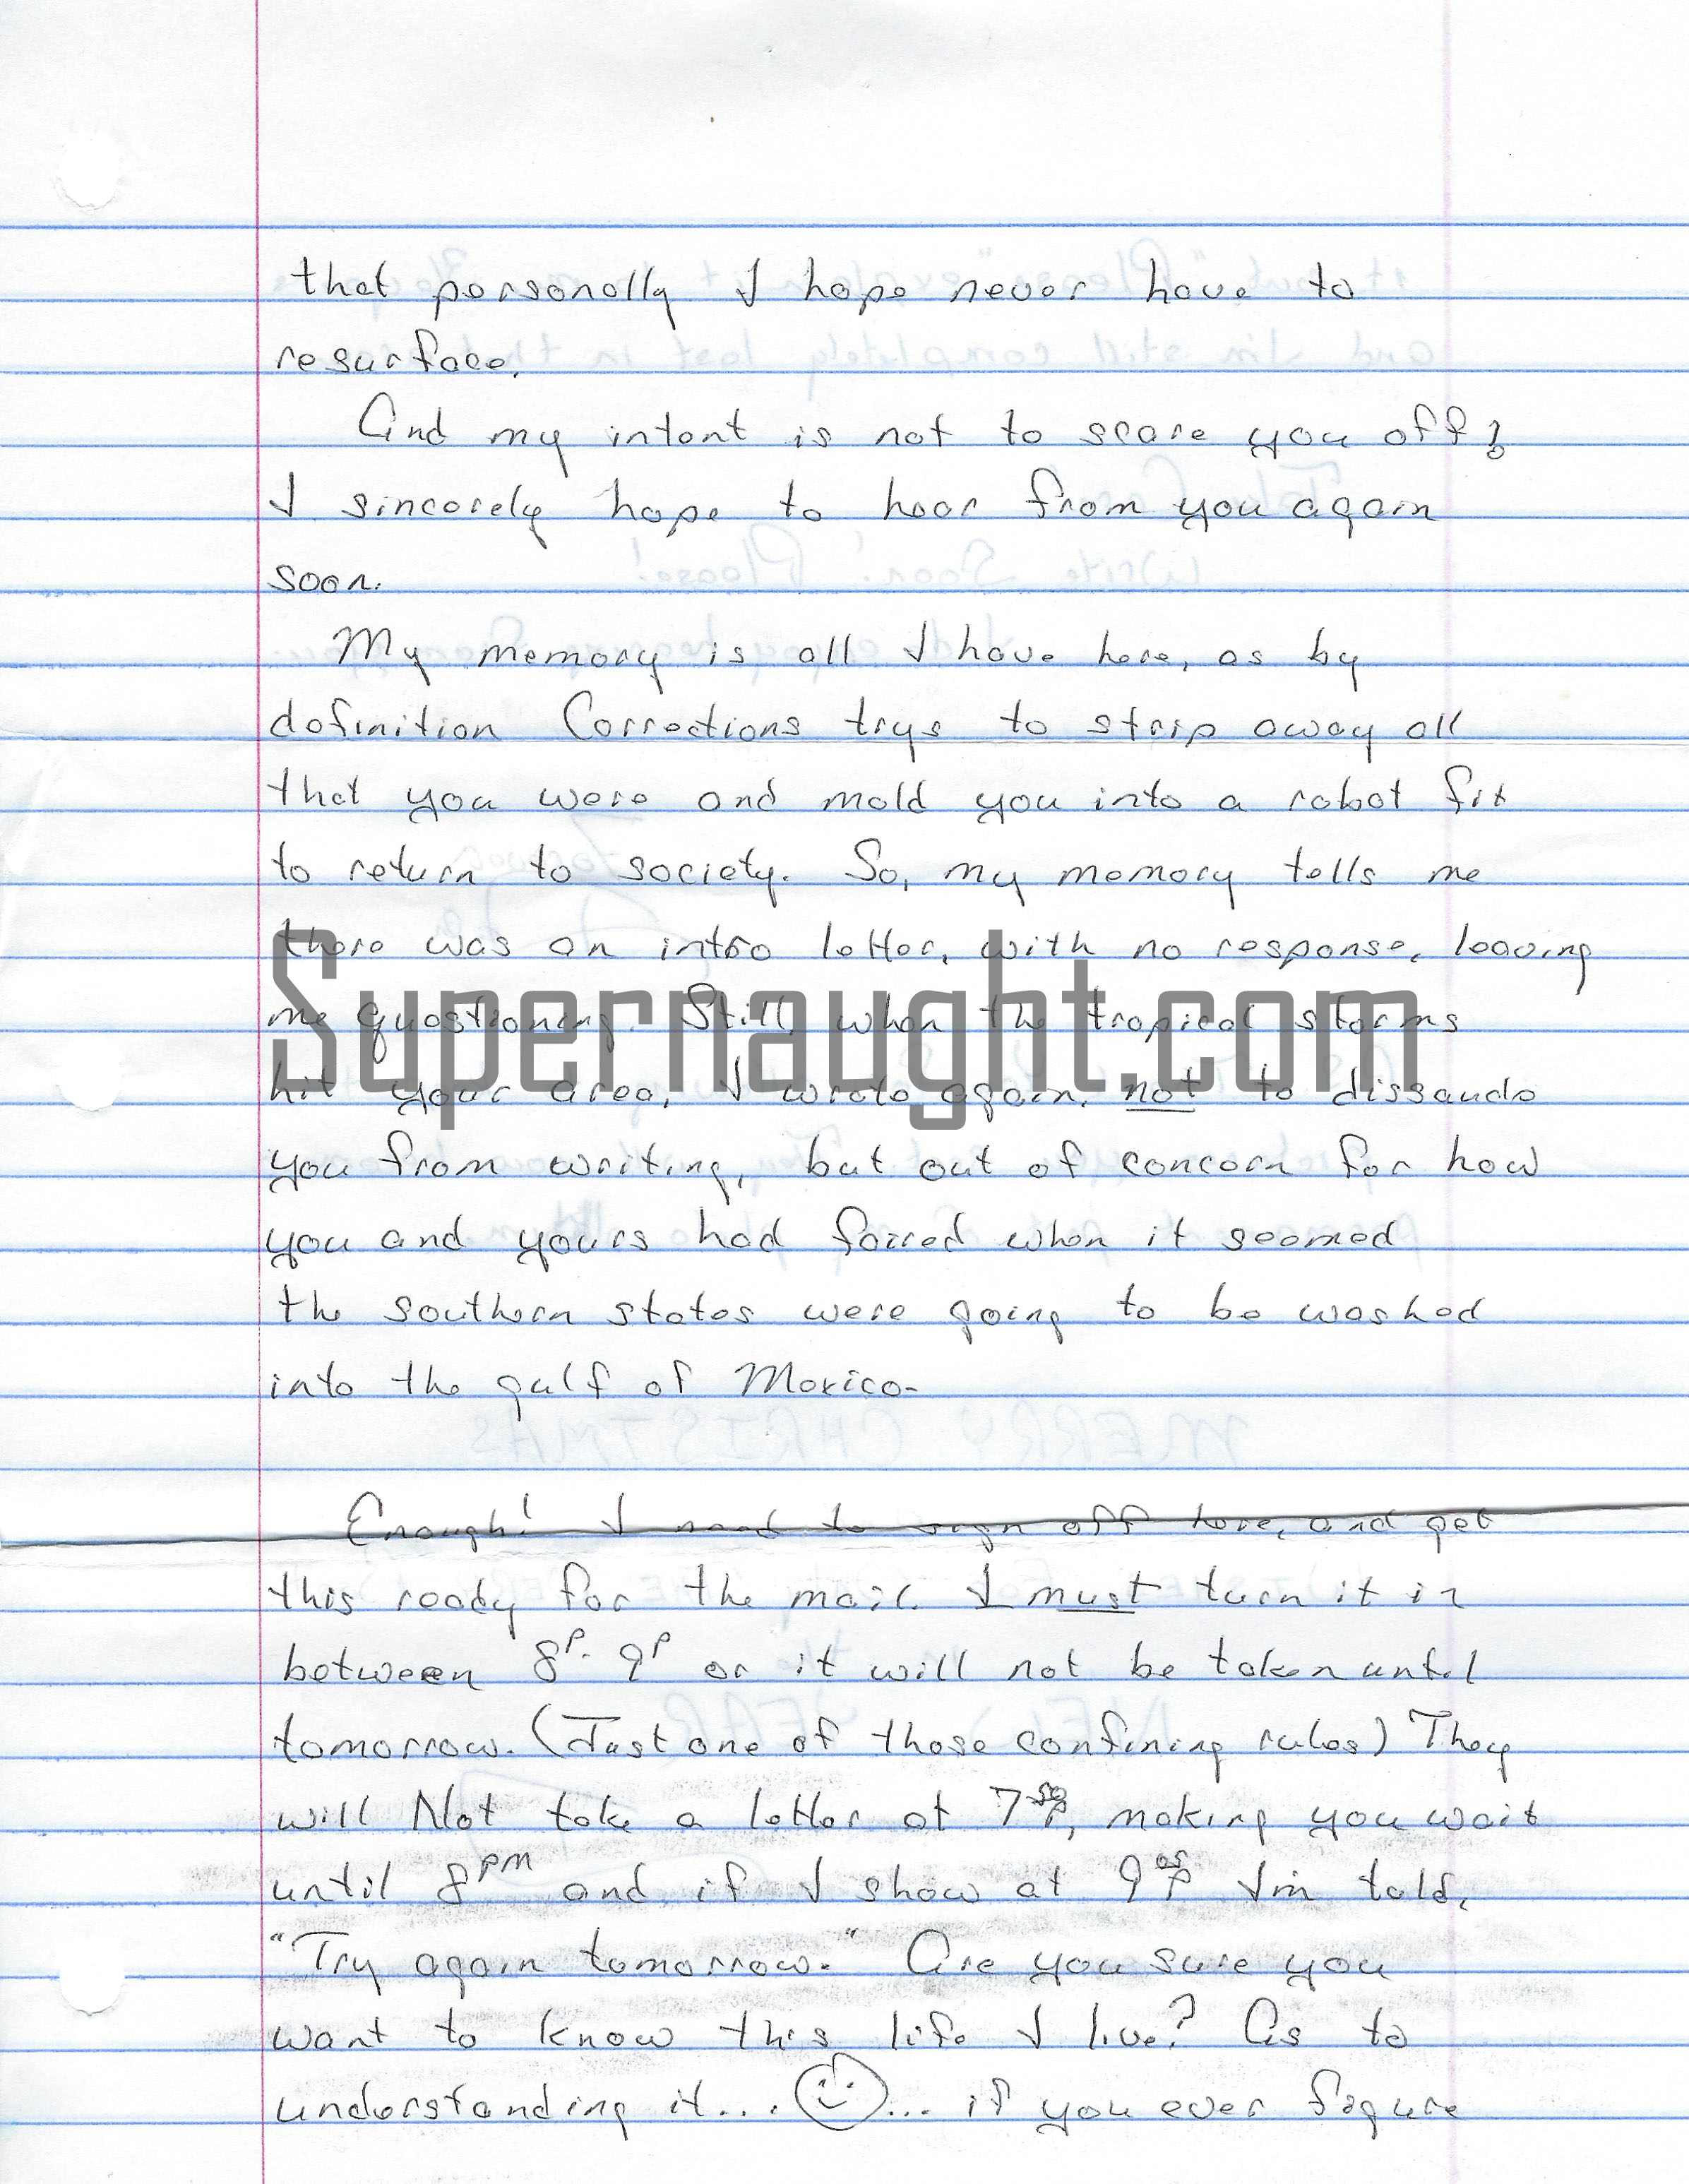 that personally I hope never have to
resurface.
And my intent is not to scare you off;
I sincerely hope to hear from you again
soon.
My memory is all I have here, as by
definition Corrections trys to strip away all
that you were and mold you into a robot fit
to return to society. So, my memory tells me
there was an intro letter, with no response, leaving
me questioning. Still, when the tropical storms
hit your area, I wrote again, not to dissaude
you from writing, but out of concern for how
you and yours had faired when it seemed
the southern states were going to be washed
into the gulf of Mexico.
Enough! I need to sign off here, and get
this ready for the mail. I must turn it in
between 8p. 9p or it will not be taken until
tomorrow. (Just one of those confining rules) They
will Not take a letter at 7 59p, making you wait
until 8pm and if I show at 9 05p I'm told,
"Try again tomorrow." Are you sure you
want to know this life I live? As to
understanding it... ... if you ever figure
Supernaught.com